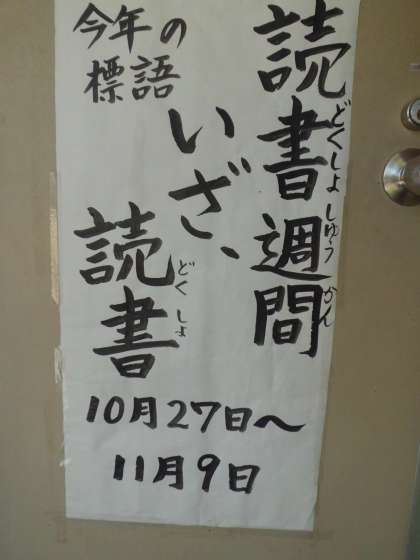 読書週間
どくしょしゅうかん
今年の
標語
いざ、
読書
どくしょ
10月27日〜
11月9日